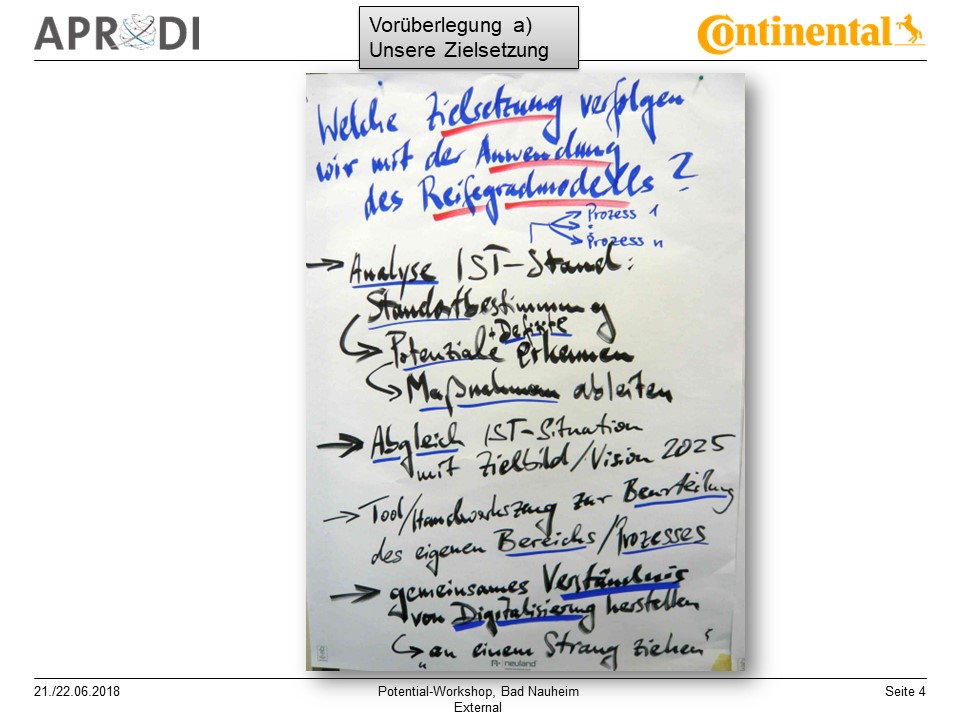 APRODI
Vorüberlegung a)
Unsere Zielsetzung
Continental
Welche Zielsetzung verfolgen
wir mit der Anwendung
des Reifegradmodells?
Prozess 1
:
Prozess n
→ Analyse IST-Stand:
Standortbestimmung
+ Defizite
↳ Potenziale erkennen
↳ Maßnahmen ableiten
→ Abgleich IST-Situation
mit Zielbild/Vision 2025
→ Tool/Handwerkszeug zur Beurteilung
des eigenen Bereichs/Prozesses
→ gemeinsames Verständnis
von Digitalisierung herstellen
↳ „an einem Strang ziehen“
neuland
21./22.06.2018
Potential-Workshop, Bad Nauheim
External
Seite 4